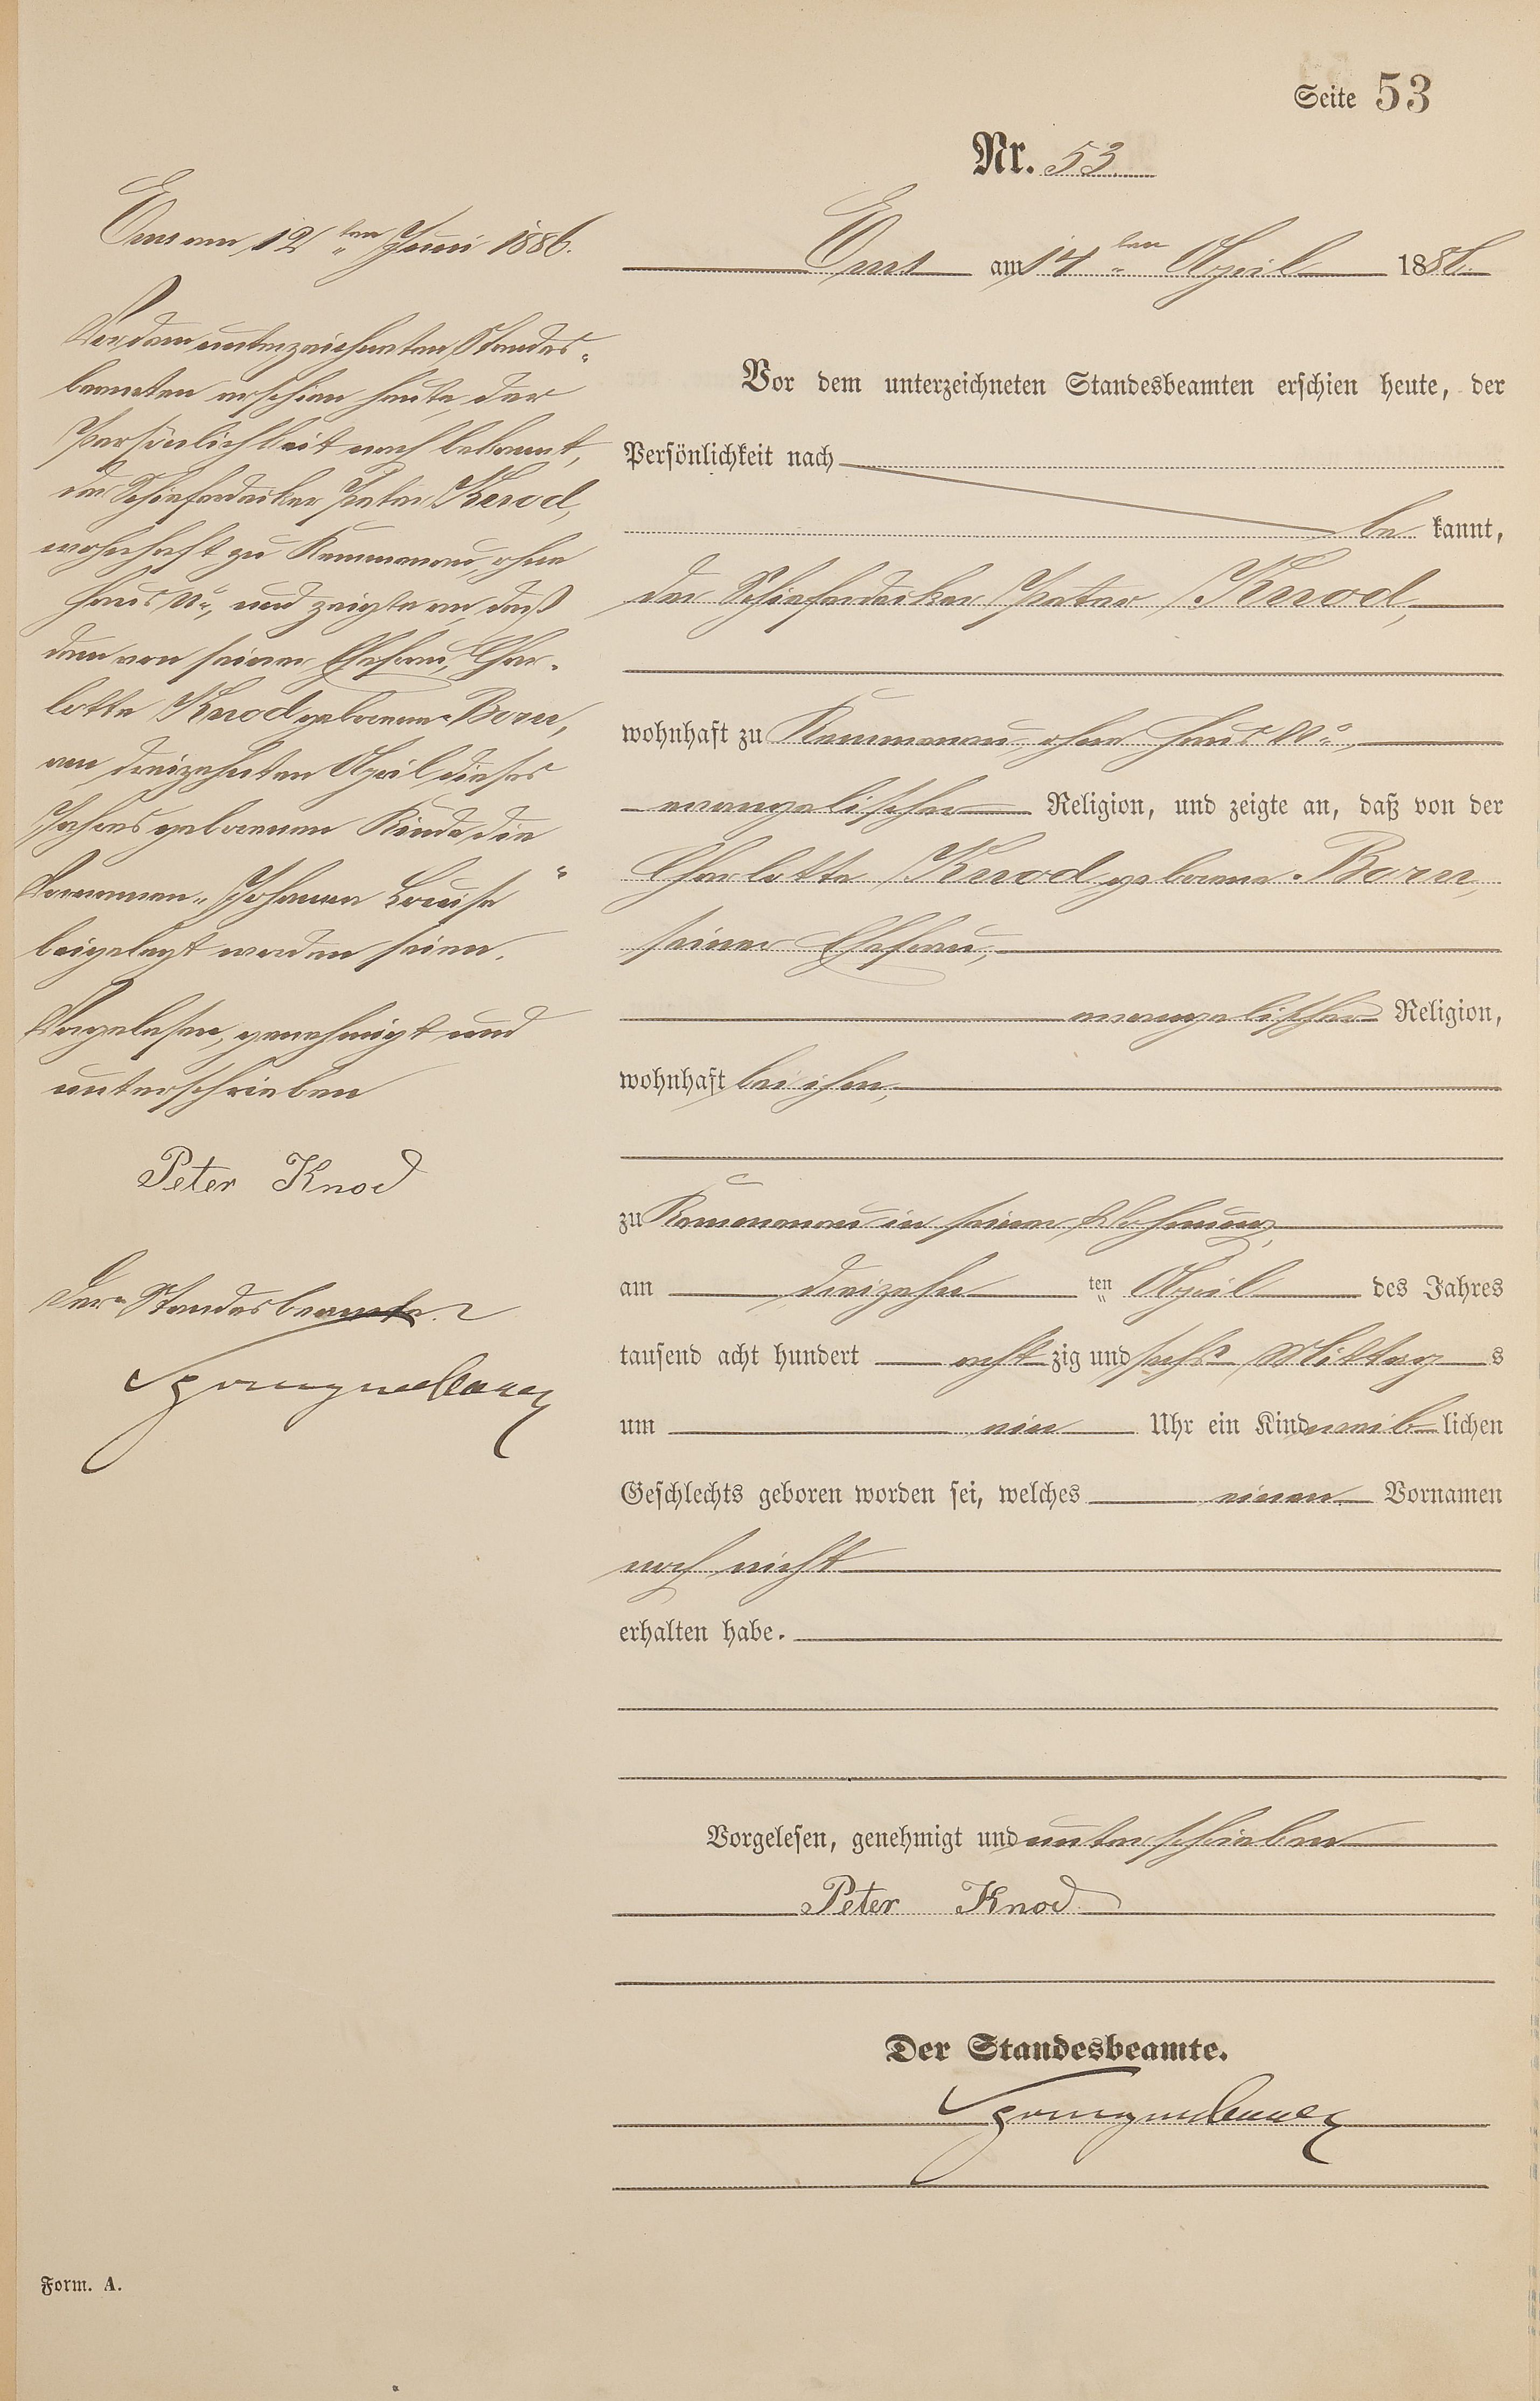 Seite 53
Nr. 53
Ems am 12ten Juni 1886.
Vor dem unterzeichneten Standes-
beamten erschien heute, der
Persönlichkeit nach bekannt,
der Schieferdecker Peter Knod,
wohnhaft zu Kemmenau, ohne
Haus No, und zeigte an, daß
dem von seiner Ehefrau, Char-
lotte Knod geborene Born,
am dreizehnten April dieses
Jahres geborenen Kinde die
Vornamen „Johanna Louise“
beigelegt worden seien.
Vorgelesen, genehmigt und
unterschrieben
Peter Knod
Der Standesbeamte.
Ems am 14ten April 1886.
Vor dem unterzeichneten Standesbeamten erschien heute, der
Persönlichkeit nach
be kannt,
der Schieferdecker Peter Knod,
wohnhaft zu Kemmenau, ohne Haus No,
evangelischer Religion, und zeigte an, daß von der
Charlotte Knod geborene Born,
seiner Ehefrau,
evangelischer Religion,
wohnhaft bei ihm,
zu Kemmenau in seiner Wohnung,
am dreizehn ten April des Jahres
tausend acht hundert acht zig und sechs Mittags
um ein Uhr ein Kind weib lichen
Geschlechts geboren worden sei, welches einen Vornamen
noch nicht
erhalten habe.
Vorgelesen, genehmigt und unterschrieben
Peter Knod
Der Standesbeamte.
Form. A.